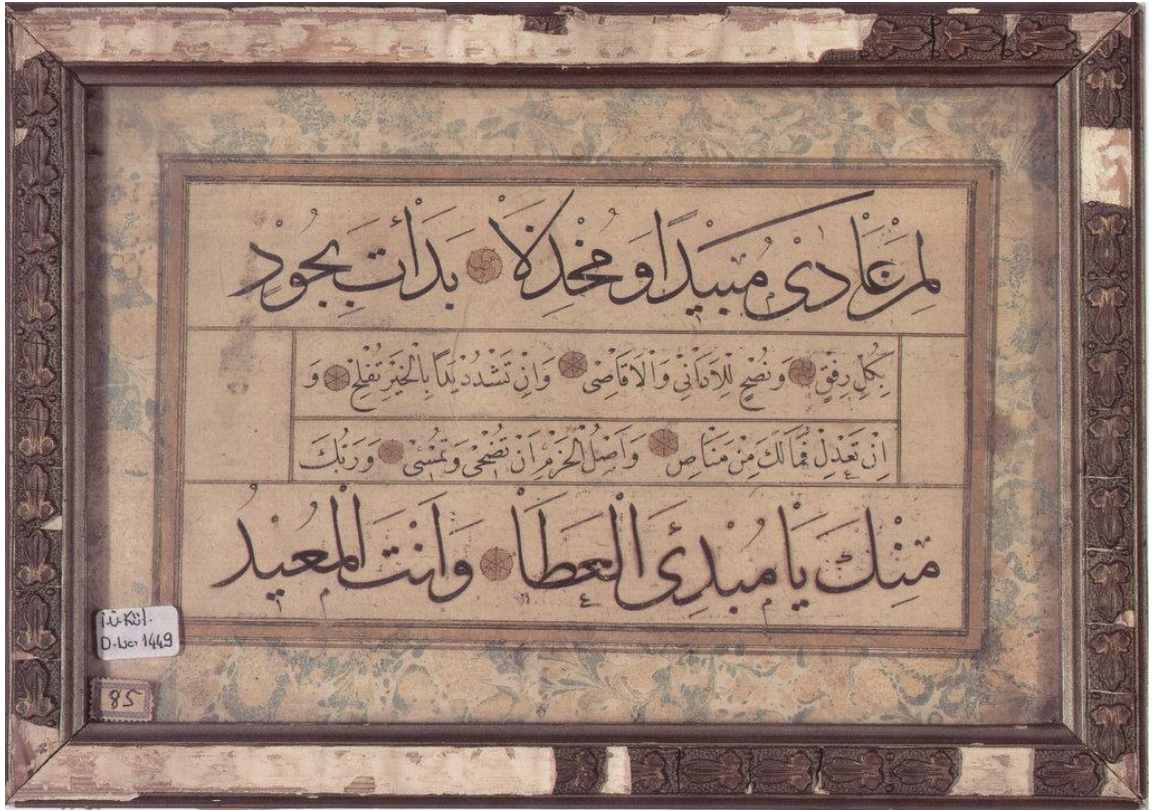 لِمَنْ عَادٰى مُبِيدًا وَمُخْذِلًا بَدَأْتَ بِجُودٍ
بِكُلِّ رِفْقٍ وَنُصْحٍ لِلْاَدَانِى وَالْاَقَاصِى وَاِنْ تَشْدُدْ يَدًا بِالْخَيْرِ تُفْلِحْ وَ
اِنْ تَعْدِلْ فَمَا لَكَ مِنْ مَنَاصٍ وَاَصْلُ الْحَزْمِ اَنْ تُضْحِىَ وَتُمْسِىَ وَرَبُّكَ
مِنْكَ يَا مُبْدِئَ الْعَطَا وَاَنْتَ الْمُعِيدُ
İ.Ü. Küt.
D. No. 1449
85